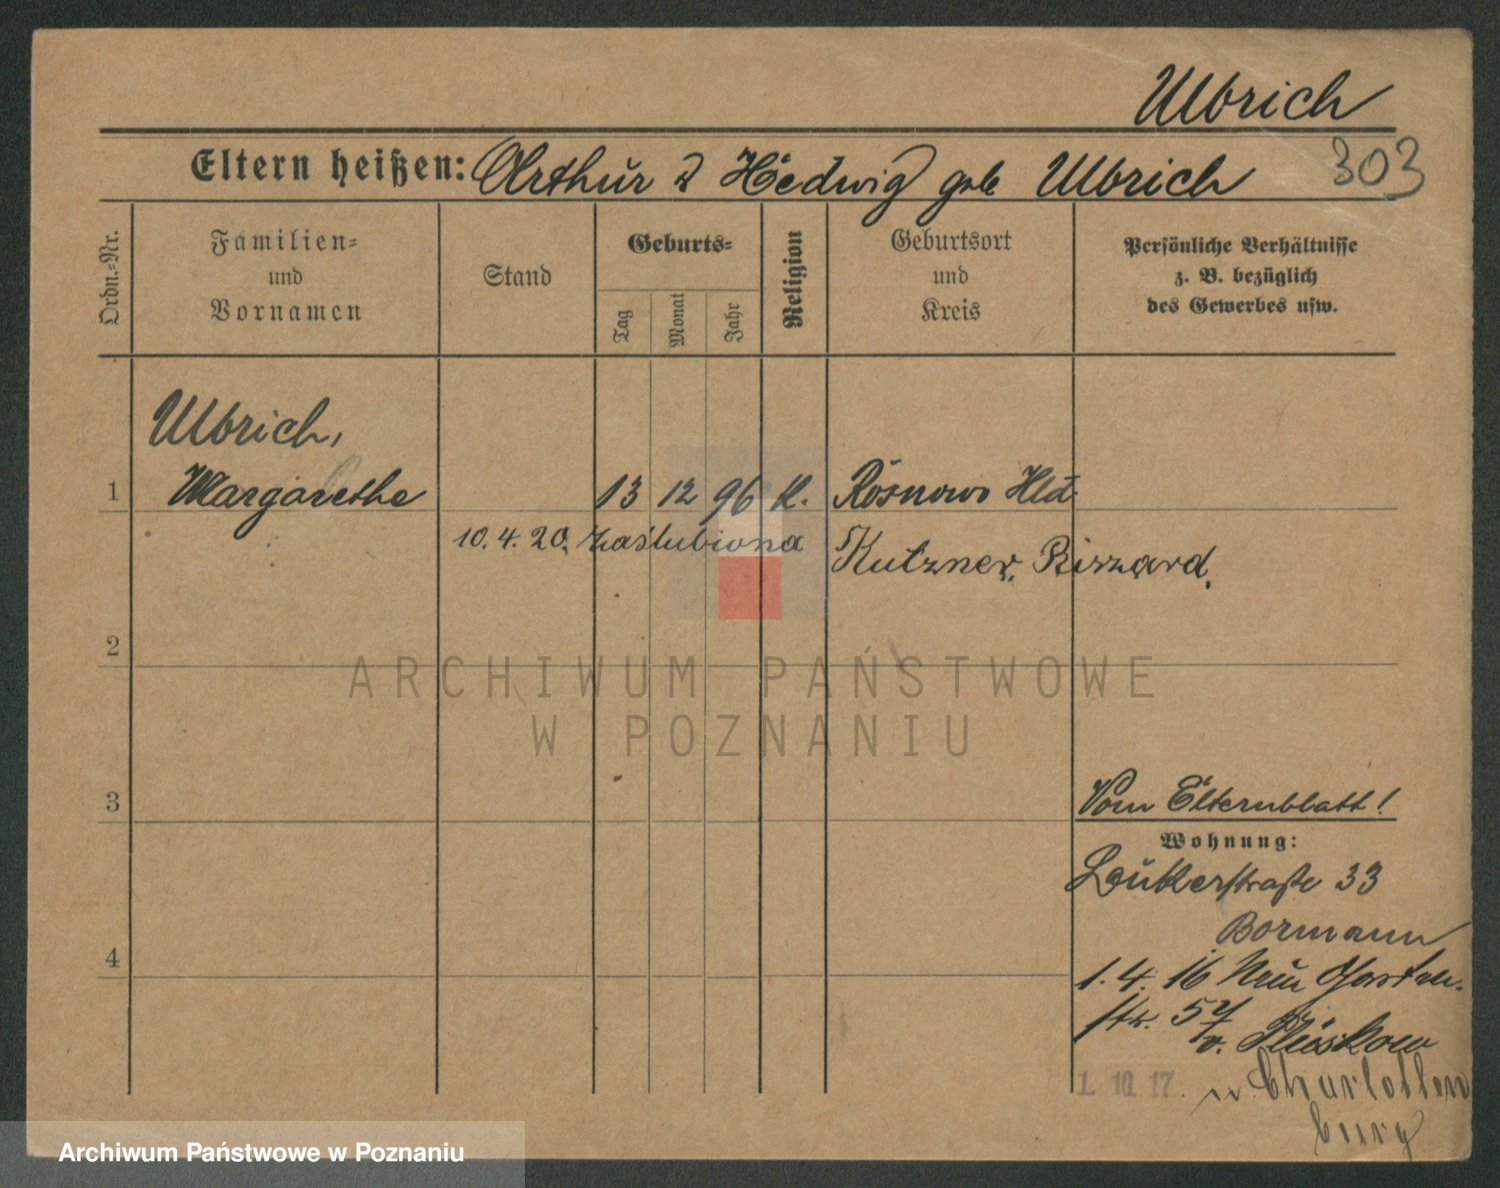 Ulbrich
Eltern heißen: Arthur u Hedwig geb Ulbrich
303
Ordn.-Nr.
Familien-
und
Vornamen
Stand
Geburts-
Tag
Monat
Jahr
Religion
Geburtsort
und
Kreis
Persönliche Verhältnisse
z. B. bezüglich
des Gewerbes usw.
Ulbrich,
1 Margarethe 13 12 96 K. Rosnowo Hld
10.4.20. zaślubiona Kutzner, Ryszard,
2
ARCHIWUM PAŃSTWOWE
W POZNANIU
3
Vom Elternblatt!
Wohnung:
33
Bormann
4
1. 4. 16 Neue Garten-
str. 57
v.
1. 10 17. n. Charlotten
burg
Archiwum Państwowe w Poznaniu